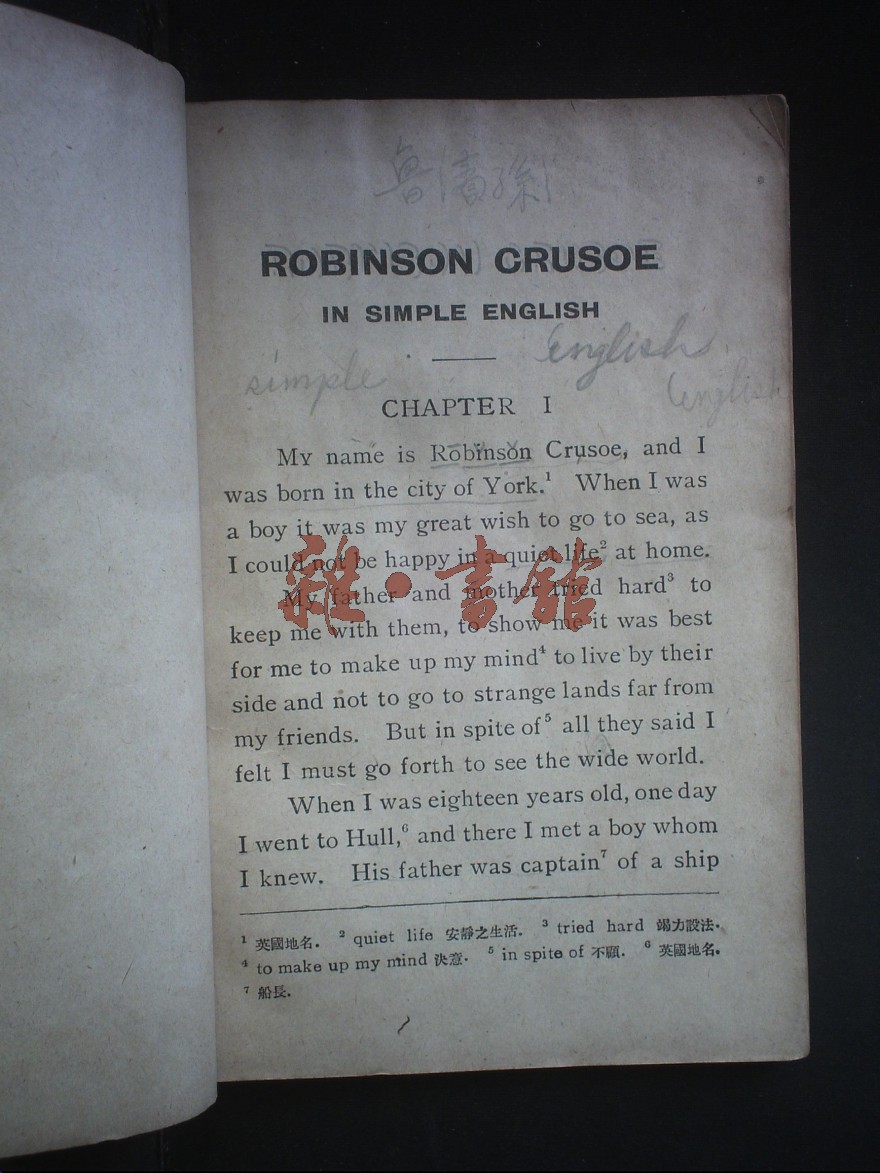 魯濱孫
ROBINSON CRUSOE
IN SIMPLE ENGLISH
simple english
english
CHAPTER I
My name is Robinson Crusoe, and I
was born in the city of York.¹ When I was
a boy it was my great wish to go to sea, as
I could not be happy in a quiet life² at home.
My father and mother tried hard³ to
keep me with them, to show me it was best
for me to make up my mind⁴ to live by their
side and not to go to strange lands far from
my friends. But in spite of⁵ all they said I
felt I must go forth to see the wide world.
When I was eighteen years old, one day
I went to Hull,⁶ and there I met a boy whom
I knew. His father was captain⁷ of a ship
¹ 英國地名. ² quiet life 安靜之生活. ³ tried hard 竭力設法.
⁴ to make up my mind 決意. ⁵ in spite of 不顧. ⁶ 英國地名.
⁷ 船長.
雜·書館